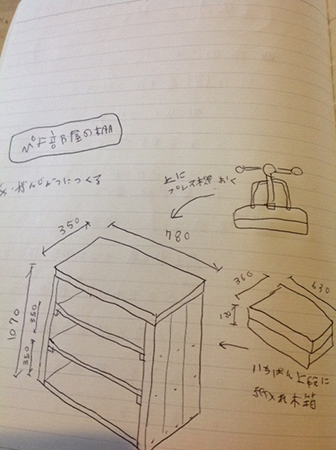 部屋の棚
がんじょうにつくる
上に
プレス機 おく
350
780
1070
350
350
360
630
いちばん上段に
紙入れ木箱